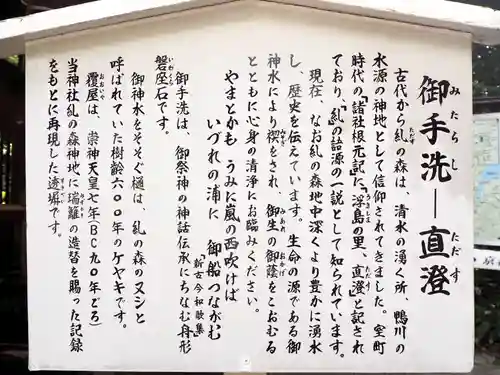 御手洗―直澄
みたらし
ただす
古代から糺の森は、清水の湧く所、鴨川の
ただす
水源の神地として信仰されてきました。室町
時代の「諸社根元記」に、浮島の里、直澄と記され
うきしま
ただす
ており、「糺の語源の一説として知られています。
現在、なお糺の森地中深くより豊かに湧水
し、歴史を伝えています。生命の源である御
神水により禊をされ、御生の御蔭をこおむる
みそぎ
みあれ
おかげ
とともに心身の清浄にお臨みください。
やまとかも うみに嵐の西吹けば
いづれの浦に 御船つながむ
「新古今和歌集」
御手洗は、御祭神の神話伝承にちなむ舟形
磐座石です。
いわくら
御神水をそそぐ樋は、糺の森のヌシと
呼ばれていた樹齢六〇〇年のケヤキです。
覆屋は、崇神天皇七年(BC九〇年ごろ)
おおいや
当神社糺の森神地に瑞籬の造替を賜った記録
をもとに再現した透塀です。